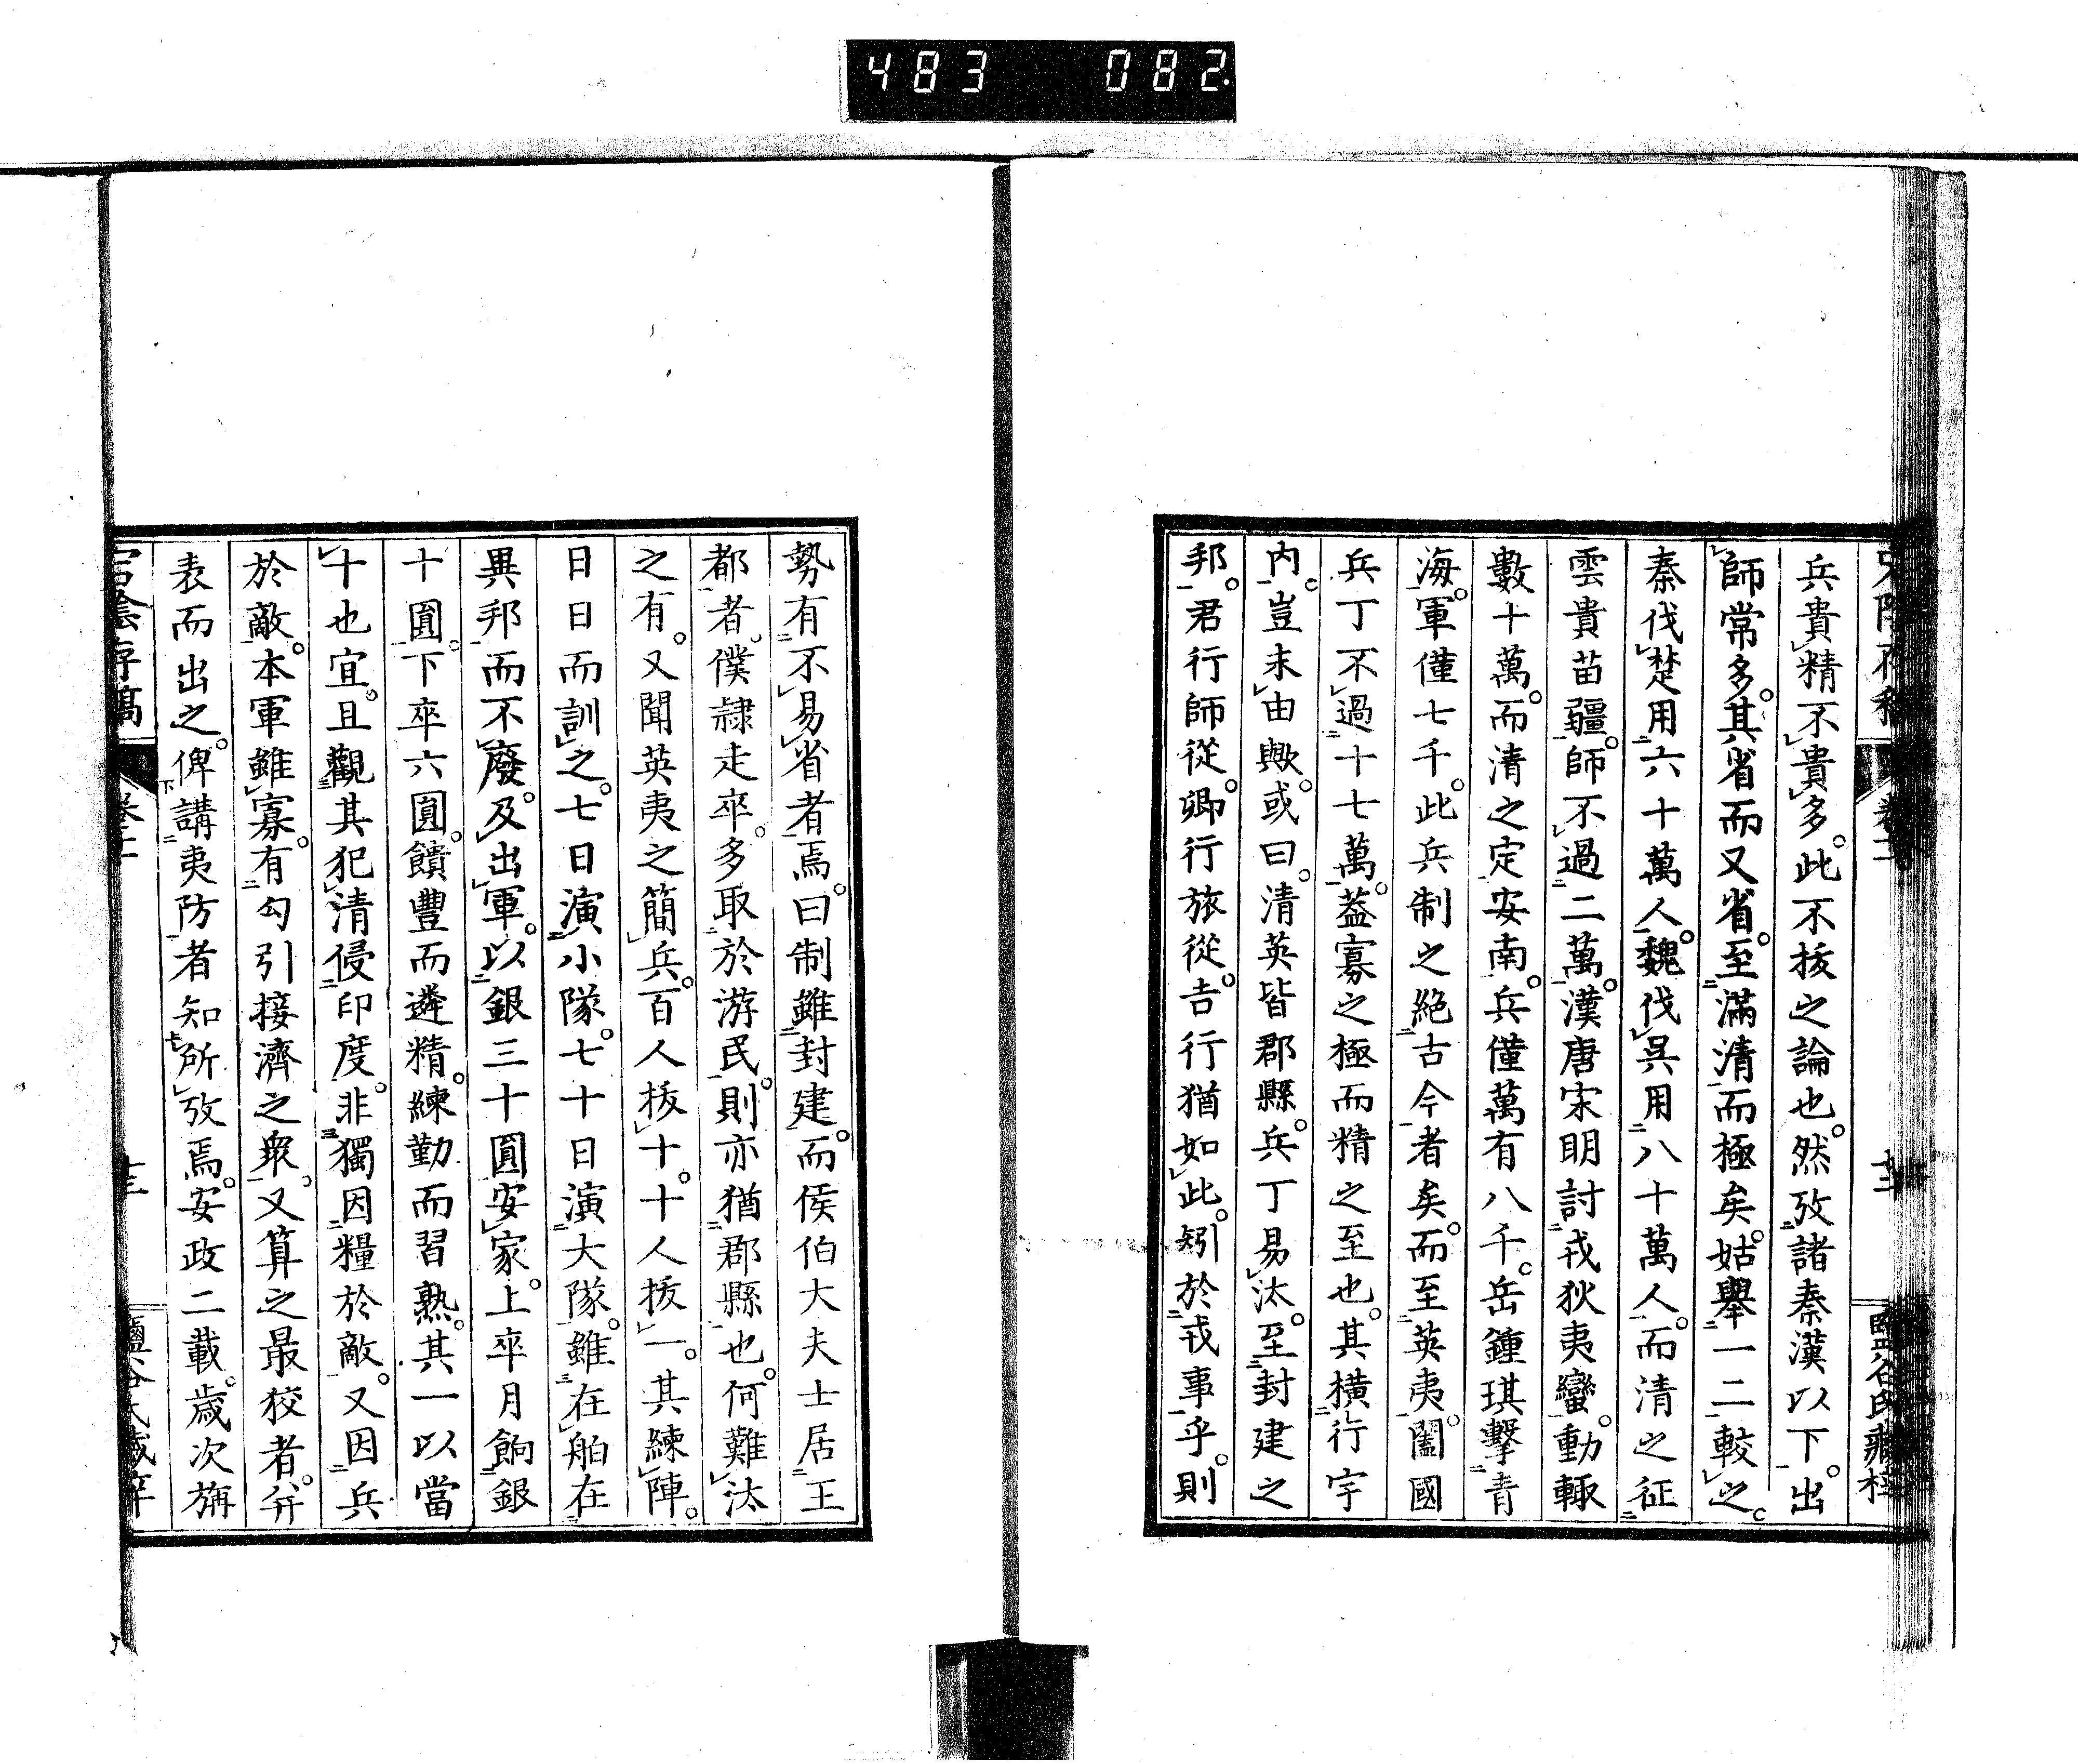 483 082
兵貴精不貴多。此不拔之論也。然攷諸秦漢以下。出
師常多。其省而又省。至滿清而極矣。姑舉一二較之。
秦伐楚用六十萬人。魏伐吳用八十萬人。而清之征
雲貴苗疆。師不過二萬。漢唐宋明討戎狄夷蠻。動輙
數十萬。而清之定安南。兵僅萬有八千。岳鍾琪擊青
海。軍僅七千。此兵制之絕古今者矣。而至英夷。闔國
兵丁不過十七萬。葢寡之極而精之至也。其橫行宇
內。豈未由歟。或曰。清英皆郡縣。兵丁易汰。至封建之
邦。君行師從。卿行旅從。吉行猶如此。矧於戎事乎。則
勢有不易省者焉。曰制雖封建。而侯伯大夫士居王
都者。僕隷走卒。多取於游民。則亦猶郡縣也。何難汰
之有。又聞英夷之簡兵。百人拔十。十人拔一。其練陣。
日日而訓之。七日演小隊。七十日演大隊。雖在舶在
異邦而不廢。及出軍。以銀三十圓安家。上卒月餉銀
十圓。下卒六圓。饋豐而遴精。練勤而習熟。其一以當
十也宜。且觀其犯清侵印度。非獨因糧於敵。又因兵
於敵。本軍雖寡。有勾引接濟之衆。又算之最狡者。幷
表而出之。俾講夷防者知所攷焉。安政二載。歲次旃
宕陰存稿 卷二 十三